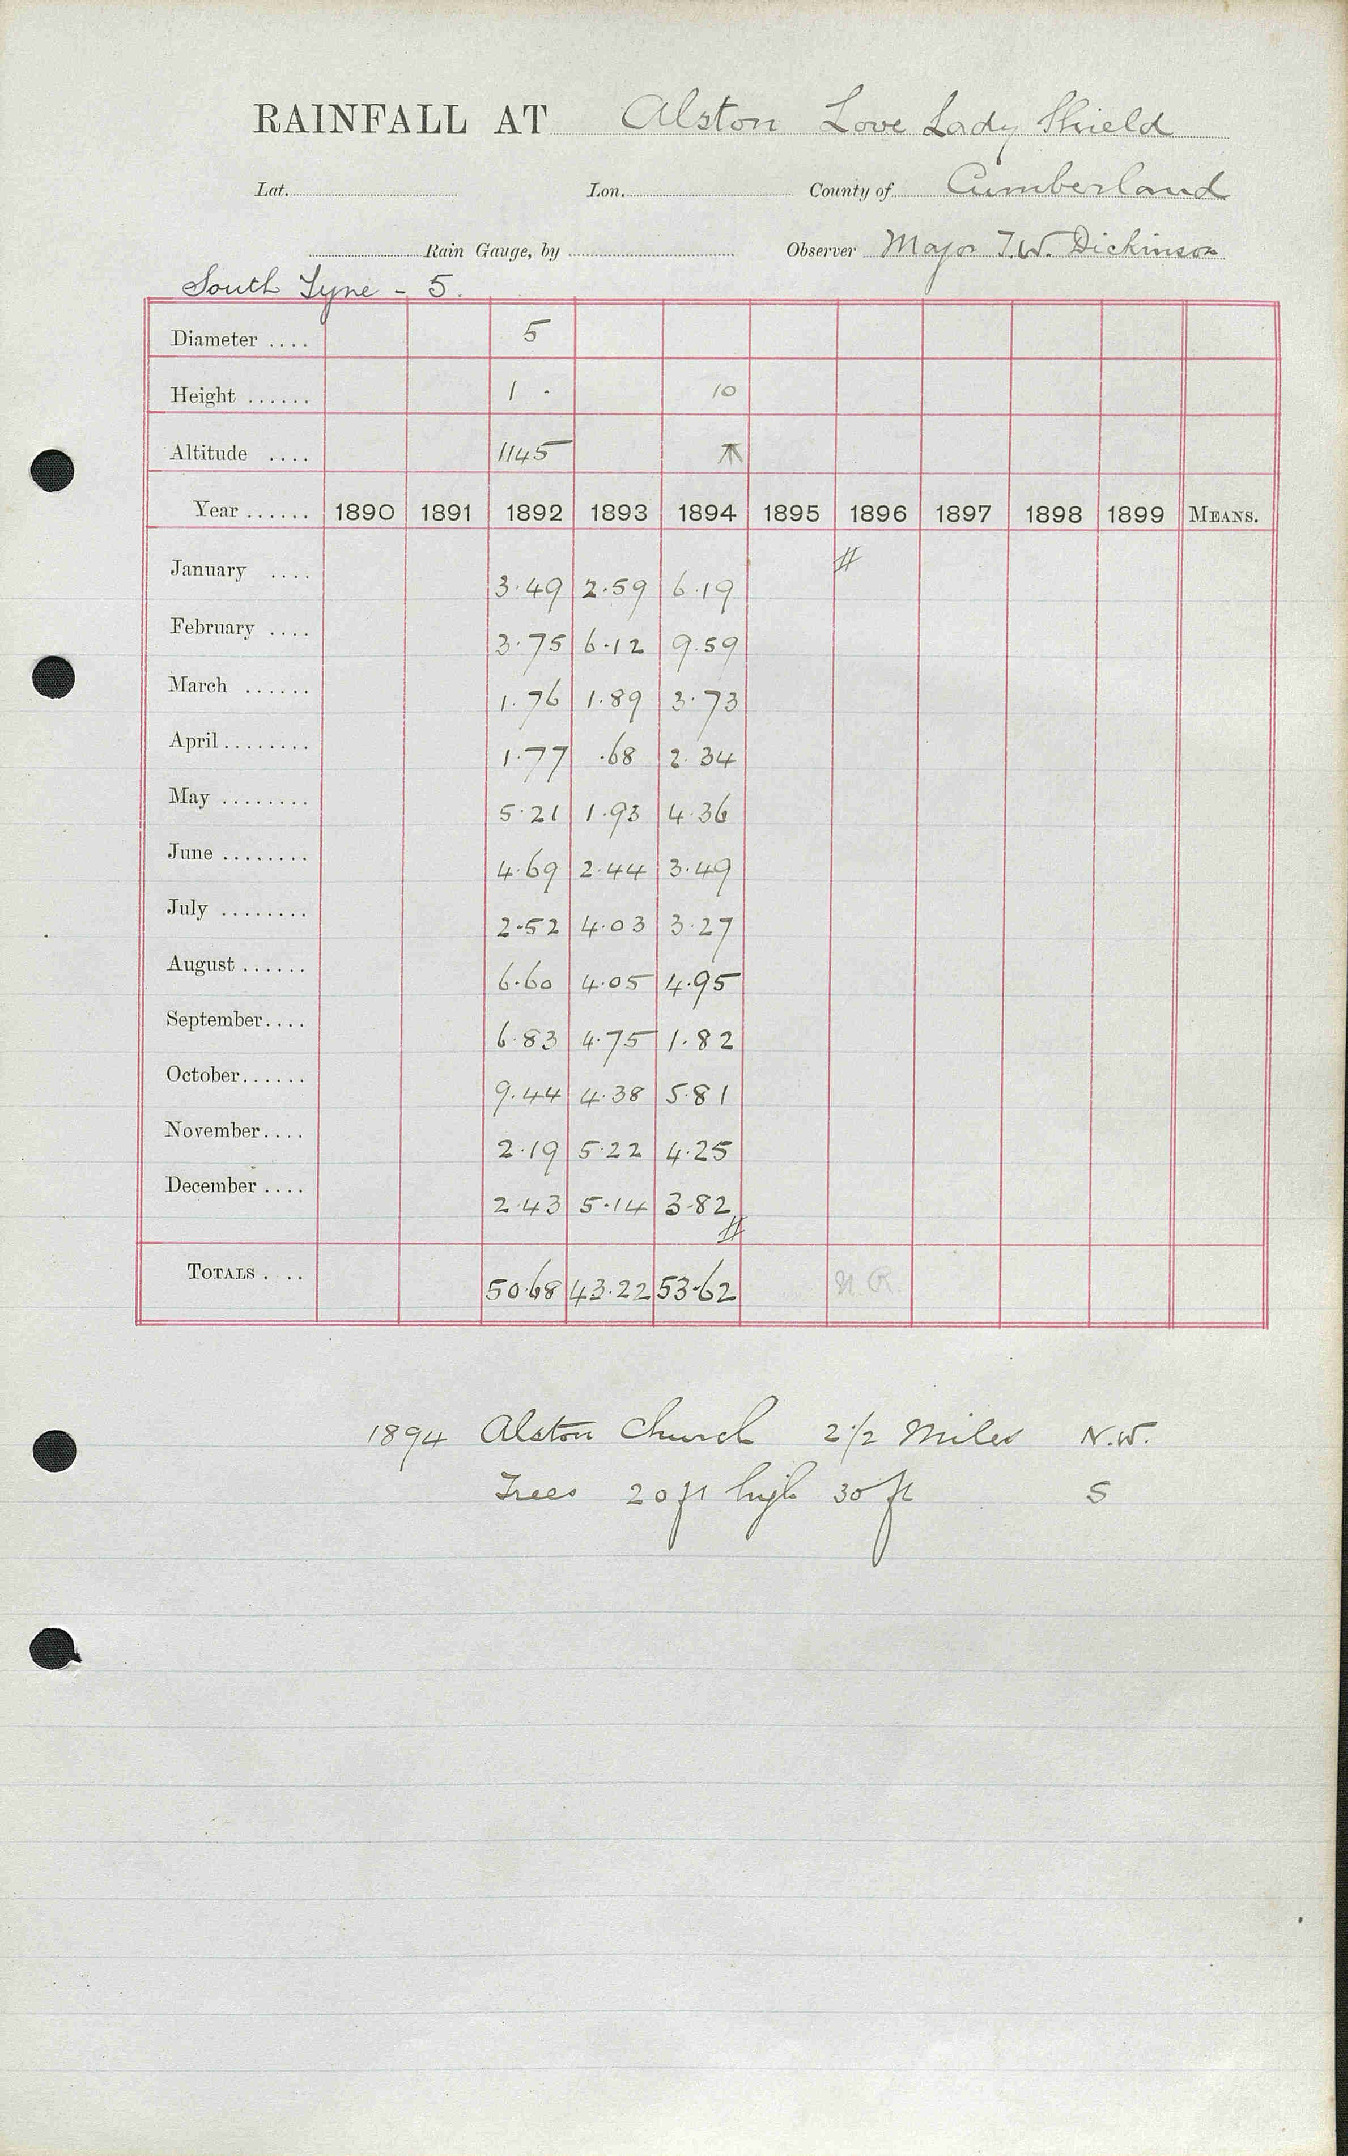 RAINFALL AT Alston Love Lady Shield
Lat. Lon. County of Cumberland
Rain Gauge, by Observer Major T.W. Dickinson
South Tyne - 5.
Diameter .... 5
Height ...... 1 . 10
Altitude .... 1145
Year ...... 1890 1891 1892 1893 1894 1895 1896 1897 1898 1899 MEANS.
January .... 3.49 2.59 6.19 #
February .... 3.75 6.12 9.59
March ...... 1.76 1.89 3.73
April ........ 1.77 .68 2.34
May ........ 5.21 1.93 4.36
June ........ 4.69 2.44 3.49
July ........ 2.52 4.03 3.27
August ...... 6.60 4.05 4.95
September.... 6.83 4.75 1.82
October...... 9.44 4.38 5.81
November.... 2.19 5.22 4.25
December .... 2.43 5.14 3.82 #
TOTALS . .. 50.68 43.22 53.62 N.R.
1894 Alston Church 2 1/2 Miles N.W.
Trees 20 ft high 30 ft S